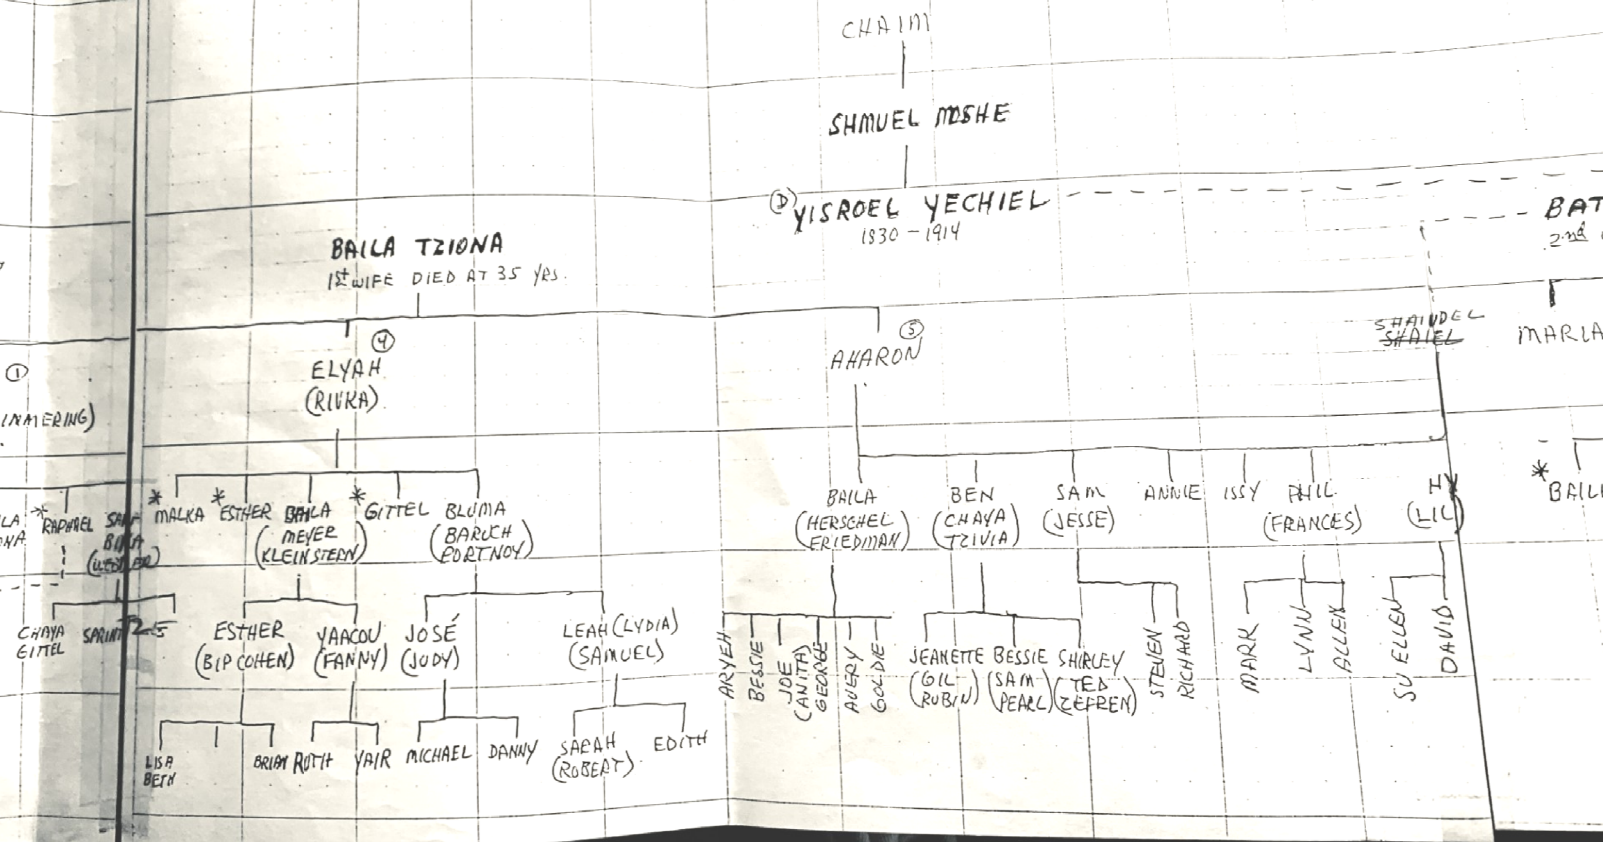 CHAIM
SHMUEL MOSHE
Ⓓ YISROEL YECHIEL
1830 - 1914
BAT
2nd
BAILA TZIONA
1st WIFE DIED AT 35 YRS.
SHAINDEL
SHAIEL
MARIA
①
INMERING)
④
ELYAH
(RIVKA)
⑤
AHARON
* RAPHAEL
* MALKA
* ESTHER
BAILA
MEYER
(KLEINSTERN)
* GITTEL
BLUMA
(BARUCH
PORTNOY)
BAILA
(HERSCHEL
FRIEDMAN)
BEN
(CHAYA
TZIVIA)
SAM
(JESSE)
ANNIE
ISSY
PHIL
(FRANCES)
HY
(LIL)
* BAIL
CHAYA
GITTEL
ESTHER
(BIP COHEN)
YAACOV
(FANNY)
JOSÉ
(JUDY)
LEAH (LYDIA)
(SAMUEL)
ARYEH
BESSIE
JOE
(ANITA)
GEORGE
AVERY
GOLDIE
JEANETTE
(GIL
RUBIN)
BESSIE
(SAM
PEARL)
SHIRLEY
(TED
ZEFREN)
STEVEN
RICHARD
MARK
LYNN
ALLEN
SU ELLEN
DAVID
LISA
BETH
BRIAN
RUTH
YAIR
MICHAEL
DANNY
SARAH
(ROBERT)
EDITH